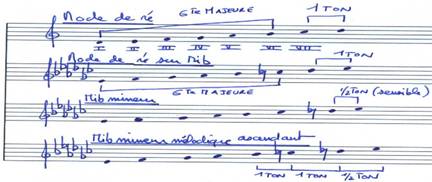 Mode de ré 6te MAJEURE 1 TON
I II III IV V VI VII
Mode de ré sur Mib 1 TON
6te MAJEURE
Mib mineur 1/2 TON (sensible)
Mib mineur mélodique ascendant
1 TON 1 TON 1/2 TON